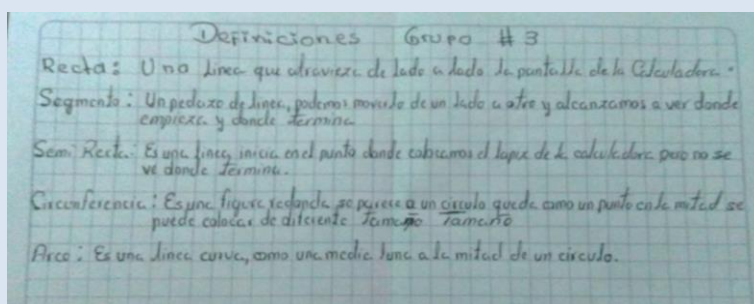 Definiciones Grupo # 3
Recta: Una linea que atravieza de lado a lado la pantalla de la Calculadora.
Segmento: Un pedazo de linea, podemos moverlo de un lado a otro y alcanzamos a ver donde
empieza y donde termina
Semi Recta: Es una linea, inicia en el punto donde colocamos el lapiz de la calculadora pero no se
ve donde termina.
Circunferencia: Es una figura redonda se parece a un circulo queda como un punto en la mitad se
puede colocar de diferente Tamaño Tamaño
Arco: Es una linea curva, como una media luna a la mitad de un circulo.